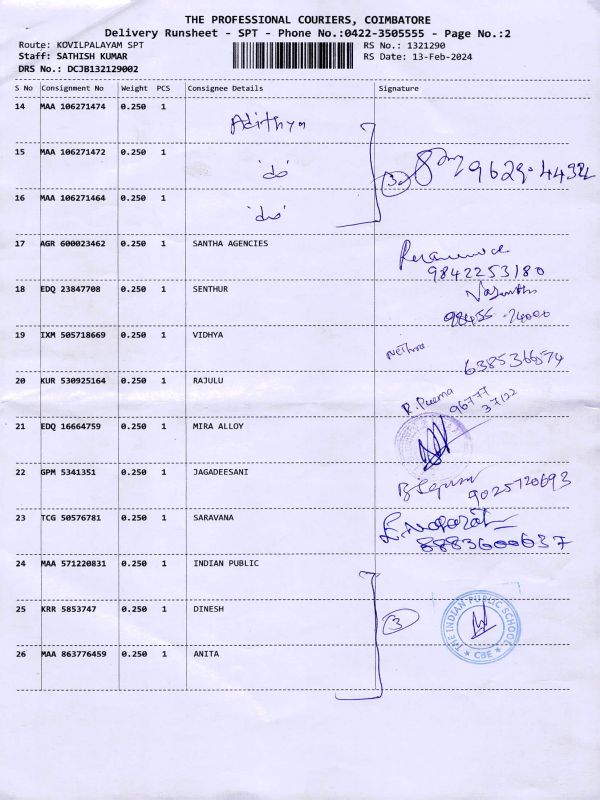 THE PROFESSIONAL COURIERS, COIMBATORE
Delivery Runsheet - SPT - Phone No.:0422-3505555 - Page No.:2
Route: KOVILPALAYAM SPT RS No.: 1321290
Staff: SATHISH KUMAR RS Date: 13-Feb-2024
DRS No.: DCJB132129002
S No Consignment No Weight PCS Consignee Details Signature
14 MAA 106271474 0.250 1 Adithya
15 MAA 106271472 0.250 1 'do'
3
16 MAA 106271464 0.250 1 'do'
17 AGR 600023462 0.250 1 SANTHA AGENCIES
9842253180
18 EDQ 23847708 0.250 1 SENTHUR
19 IXM 505718669 0.250 1 VIDHYA
20 KUR 530925164 0.250 1 RAJULU
96777
37122
21 EDQ 16664759 0.250 1 MIRA ALLOY
22 GPM 5341351 0.250 1 JAGADEESANI
9025720693
23 TCG 50576781 0.250 1 SARAVANA
8883600637
24 MAA 571220831 0.250 1 INDIAN PUBLIC
25 KRR 5853747 0.250 1 DINESH
3
THE INDIAN PUBLIC SCHOOL
CBE
26 MAA 863776459 0.250 1 ANITA